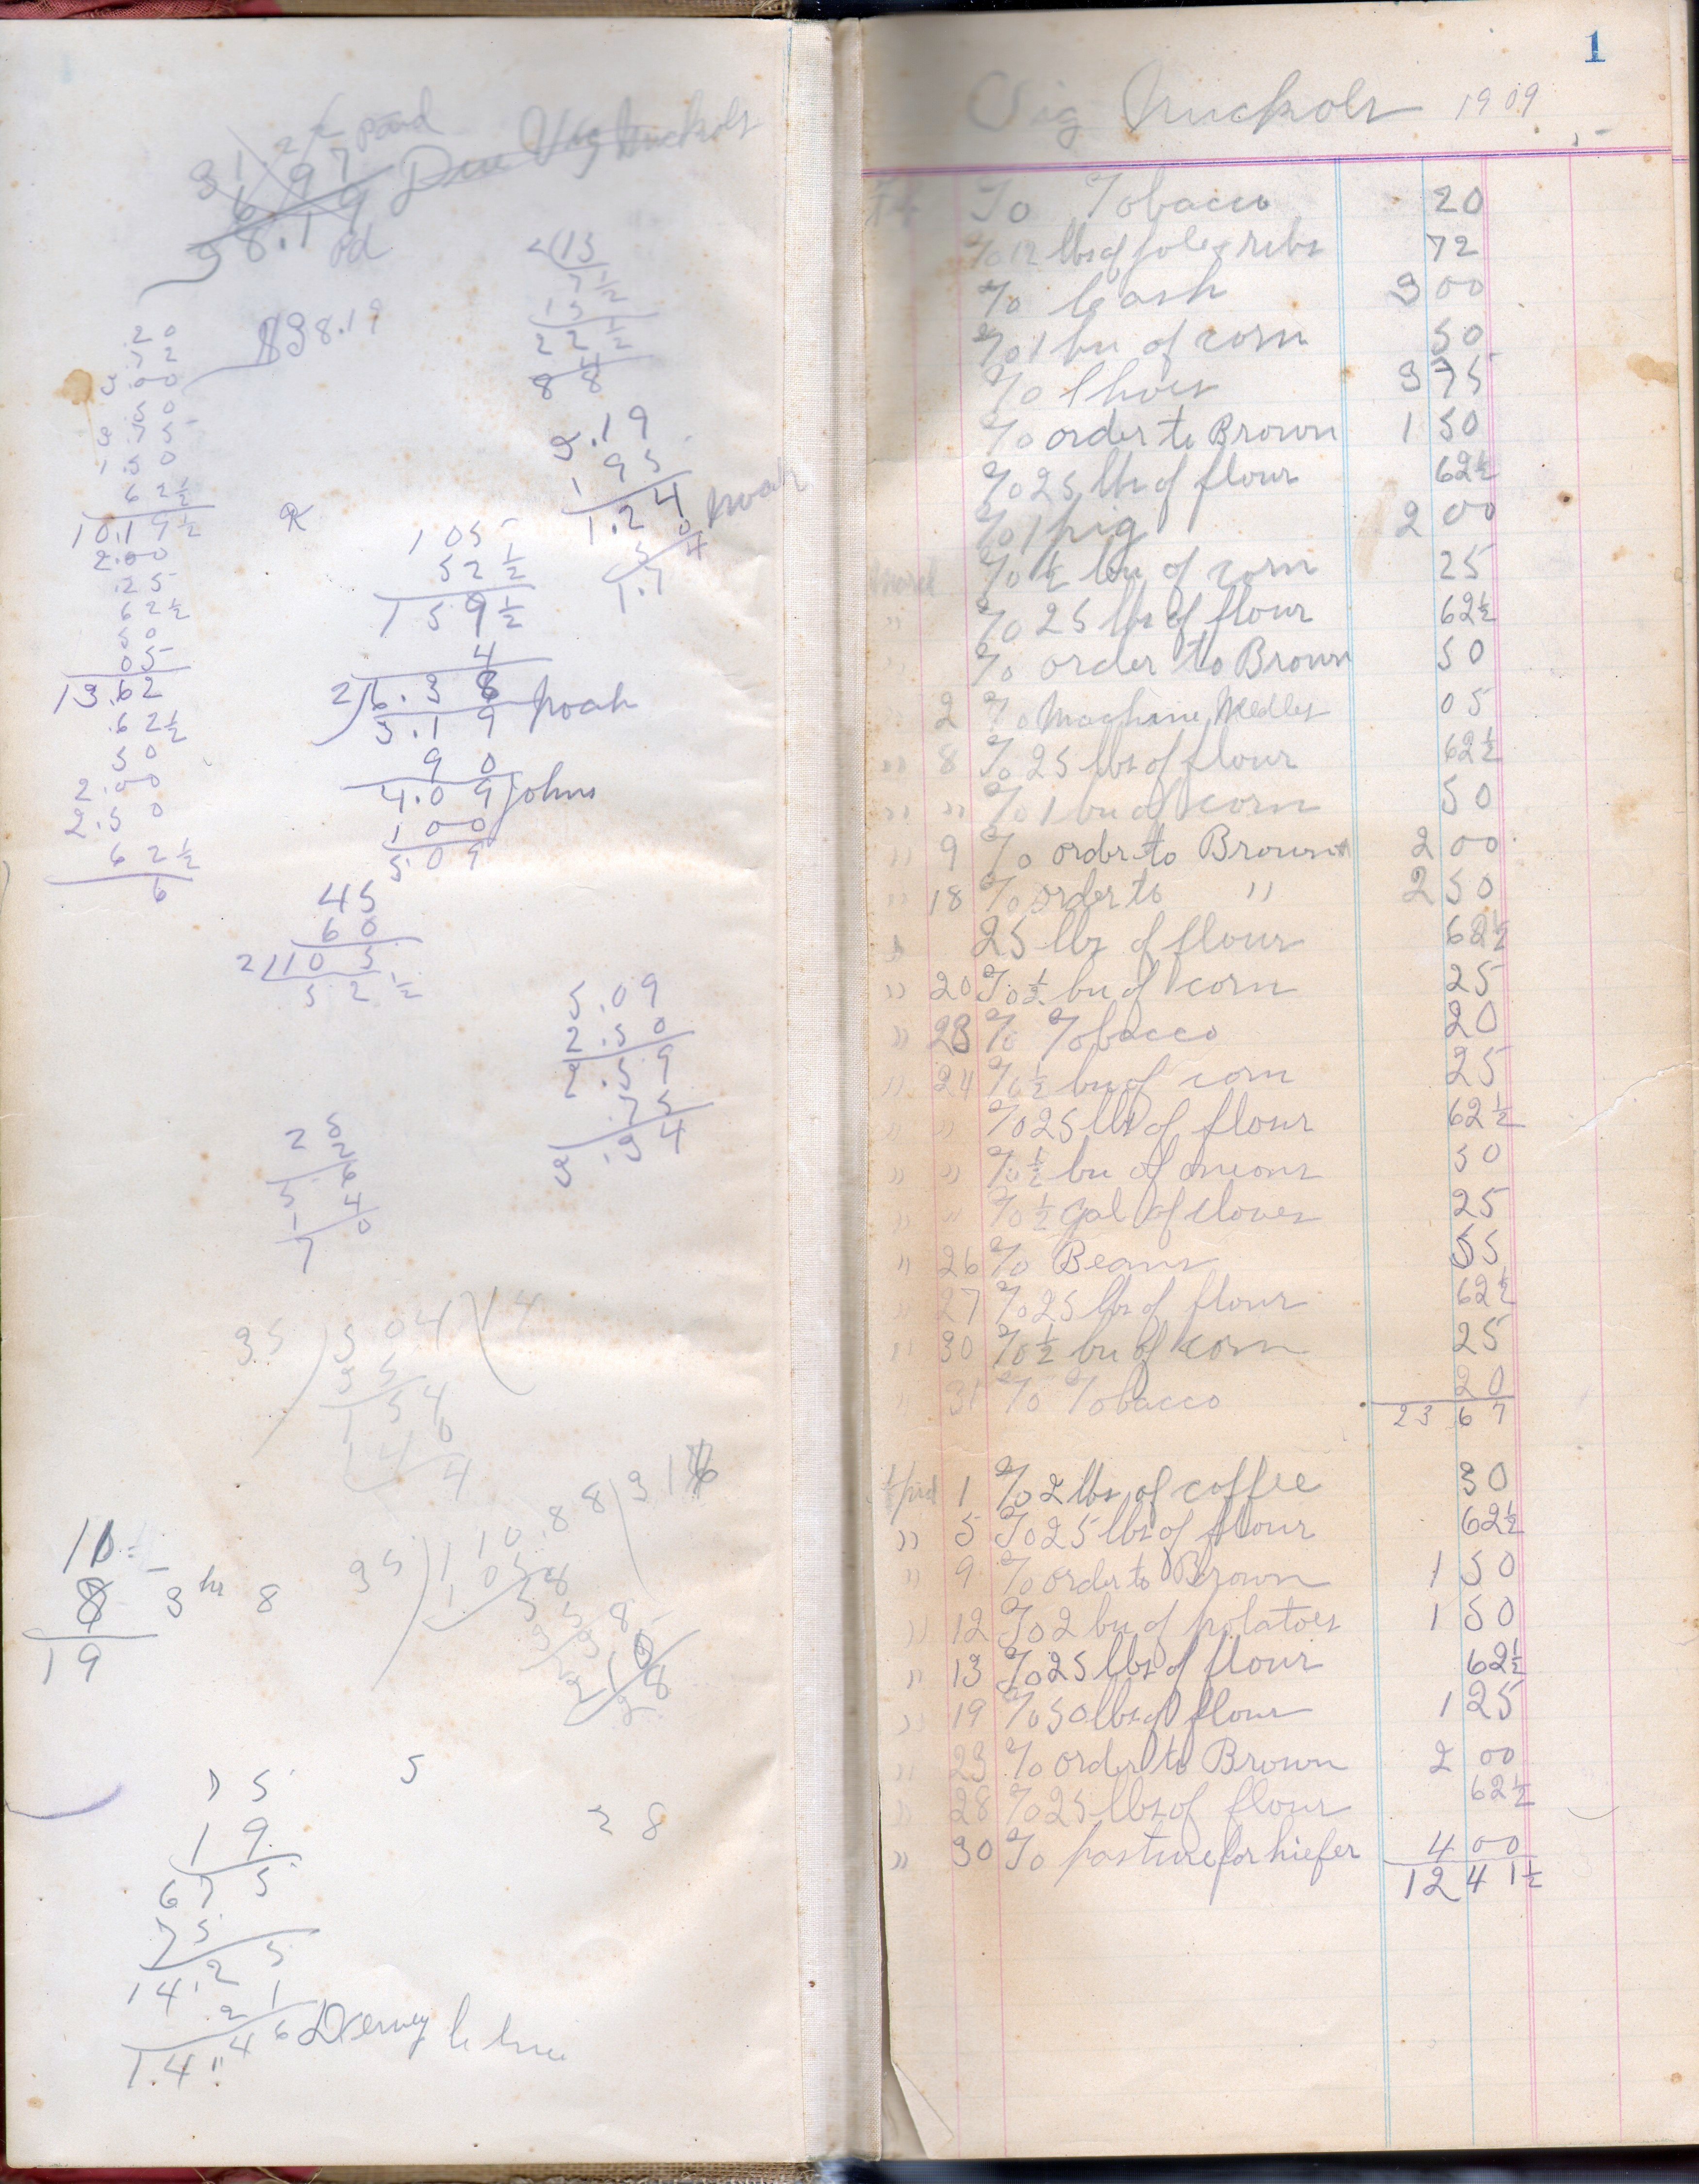 31.97 paid
6 9 Due Vig Nuckols
38.19
pd
$38.19
.20
.72
3.00
.50
3.75
1.50
62½
10.19½
2.00
.25
62½
50
05
13.62
.62½
50
2.00
2.50
62½
6
2 15
7½
15
22½
88
3.19
1 95
1.24 noah
50
1.74
105
52½
159½
4
2 6.38 noah
3.19
90
4.09 johns
1 00
5.09
45
60
2 105
52½
5.09
2.50
2.59
.75
3.34
25
2
5 6
1 4
7 0
35 ) 504 ( 14
35
154
140
14
35 ) 110.88 ( 31
105
58
35
238
210
28
11
8 3 hr 8
19
75 5
19 28
675
75
14.25
21
14.46
1
Vig Nuckols 1909
To Tobacco 20
To 12 lbs of ribs 72
To Cash 3 00
To 1 bu of corn 50
To Shoes 3 75
To order to Brown 1 50
To 25 lbs of flour 62½
To 1 pig 2 00
March To ½ bu of corn 25
" To 25 lbs of flour 62½
" To order to Brown 50
" 2 To Machine Needles 05
" 8 To 25 lbs of flour 62½
" " To 1 bu of corn 50
" 9 To order to Brown 2 00
" 18 To order to " 2 50
" 25 lbs of flour 62½
" 20 To ½ bu of corn 25
" 23 To Tobacco 20
" 24 To ½ bu of corn 25
" " To 25 lbs of flour 62½
" " To ½ bu of onions 50
" " To ½ gal of 25
" 26 To Beans 55
" 27 To 25 lbs of flour 62½
" 30 To ½ bu of corn 25
" 31 To Tobacco 20
23 67
1 To 2 lbs of coffee 30
" 5 To 25 lbs of flour 62½
" 9 To order to Brown 1 50
" 12 To 2 bu of potatoes 1 50
" 13 To 25 lbs of flour 62½
" 19 To 50 lbs of flour 1 25
" 23 To order to Brown 2 00
" 28 To 25 lbs of flour 62½
" 30 To pasture for hiefer 4 00
12 41½